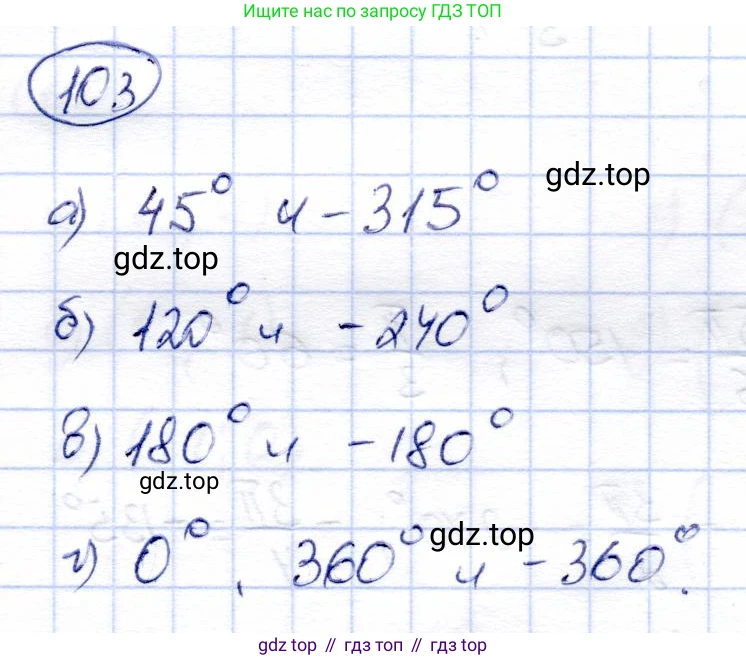 Ищите нас по запросу ГДЗ ТОП
103
а) 45° и -315°
gdz.top
gdz.top
б) 120° и -240°
в) 180° и -180°
gdz.top
gdz.top
г) 0°, 360° и -360°.
gdz top // гдз топ // gdz top